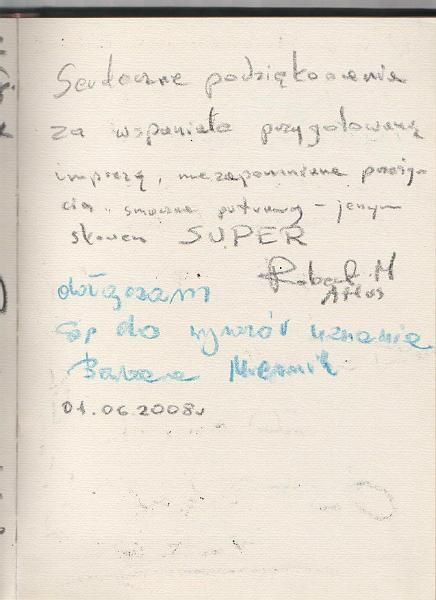 Serdeczne podziękowania
za wspaniale przygotowaną
imprezę, niezapomniane przeży-
cia, smaczne potrawy - jednym
słowem SUPER
Robert M
dołączam
się do wyrazów uznania
Barbara
01.06.2008r